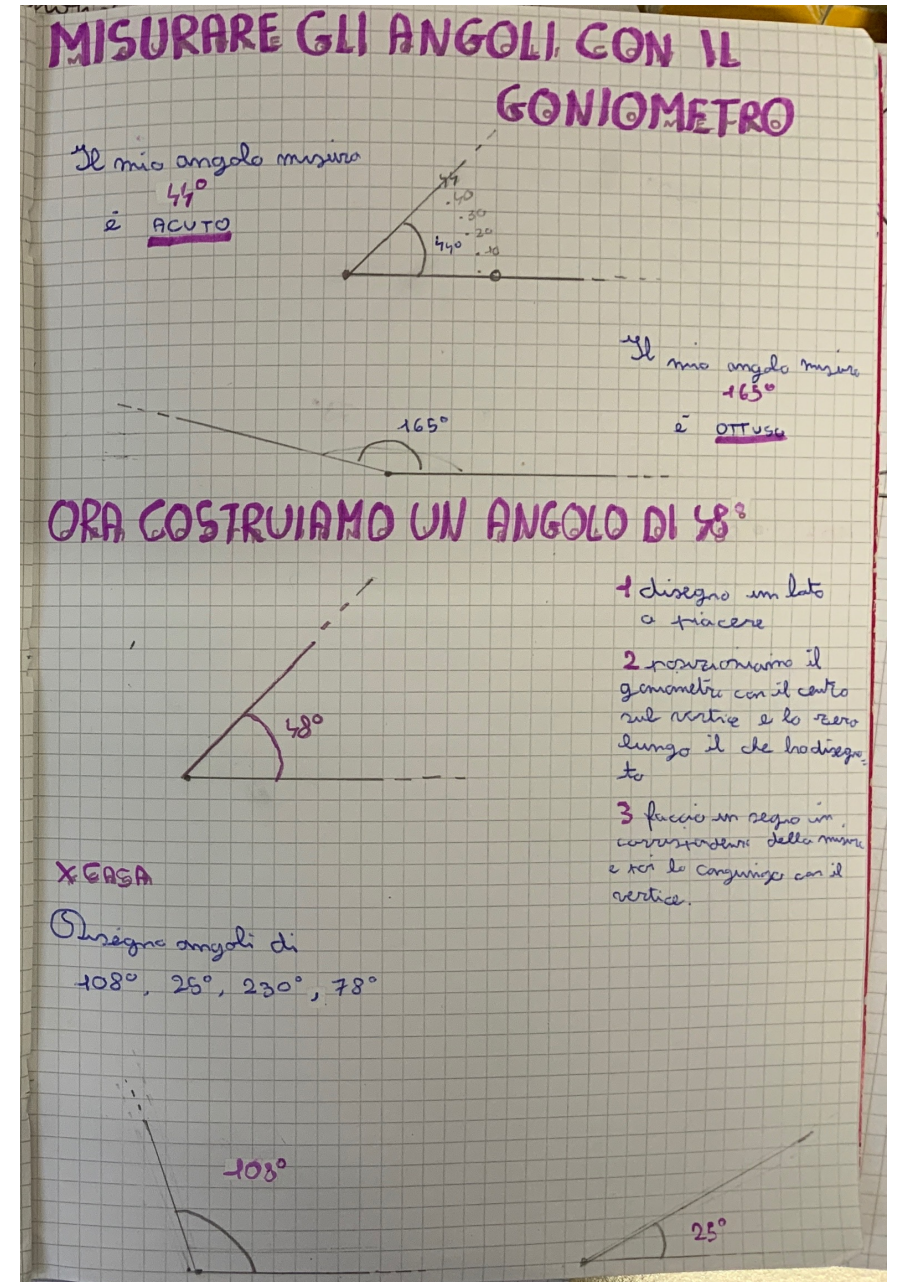 MISURARE GLI ANGOLI CON IL
GONIOMETRO
Il mio angolo misura
44°
è ACUTO
44
40
30
20
10
44°
Il mio angolo misura
165°
è OTTUSO
165°
ORA COSTRUIAMO UN ANGOLO DI 48°
48°
1 disegno un lato
a piacere
2 posizioniamo il
goniometro con il centro
sul vertice e lo zero
lungo il che ho disegna=
to
3 faccio un segno in
corrispondenza della misura
e poi lo congiungo con il
vertice.
X CASA
Disegna angoli di
108°, 25°, 230°, 78°
108°
25°